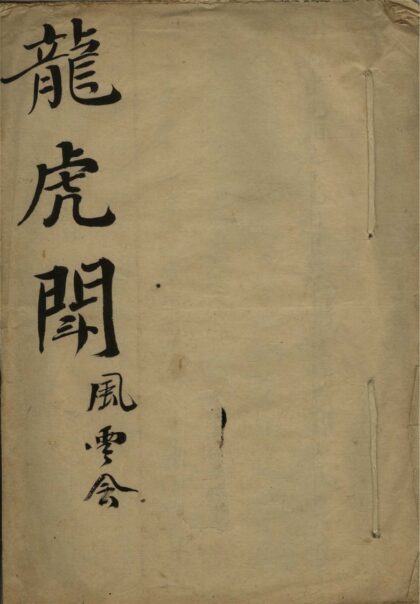 龍虎鬦
風雲会